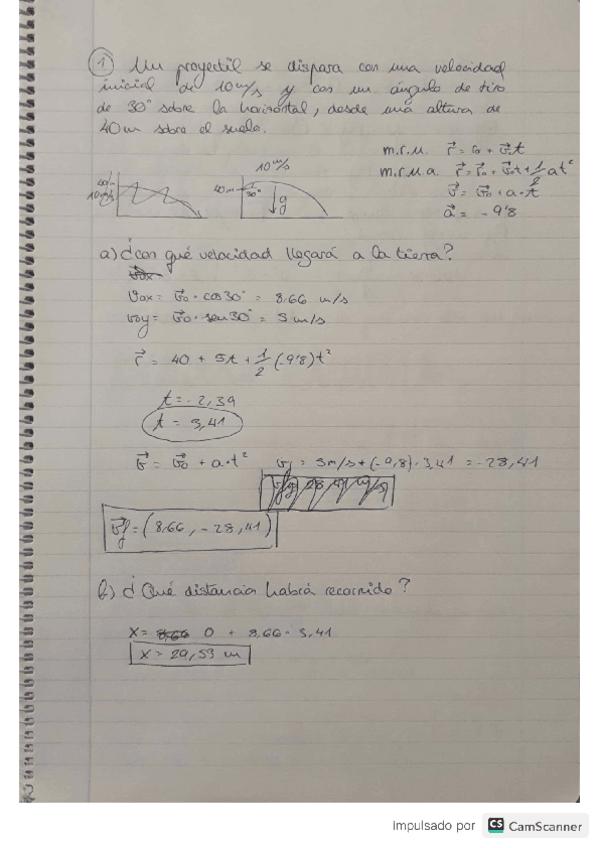 1) Un proyectil se dispara con una velocidad
inicial de 10 m/s y con un ángulo de tiro
de 30° sobre la horizontal, desde una altura de
40m sobre el suelo.
m.r.u. r⃗ = r₀ + v⃗·t
m.r.u.a. r⃗ = r⃗₀ + v⃗₀t + 1/2 at²
v⃗ = v⃗₀ + a·t
a⃗ = -9'8
10m/s
10 m/s
40m
30°
g
a) ¿con qué velocidad llegará a la tierra?
v₀x = v⃗₀ · cos30° = 8.66 m/s
v₀y = v⃗₀ · sen30° = 5 m/s
r⃗ = 40 + 5t + 1/2 (-9'8)t²
t = -2,39
t = 3,41
v⃗ = v⃗₀ + a·t² v = 5m/s + (-9,8)·3,41 = -28,41
v⃗f = (8.66, -28,41)
b) ¿Qué distancia habrá recorrido?
x = 0 + 8,66·3,41
x = 29,53 m
Impulsado por CS CamScanner